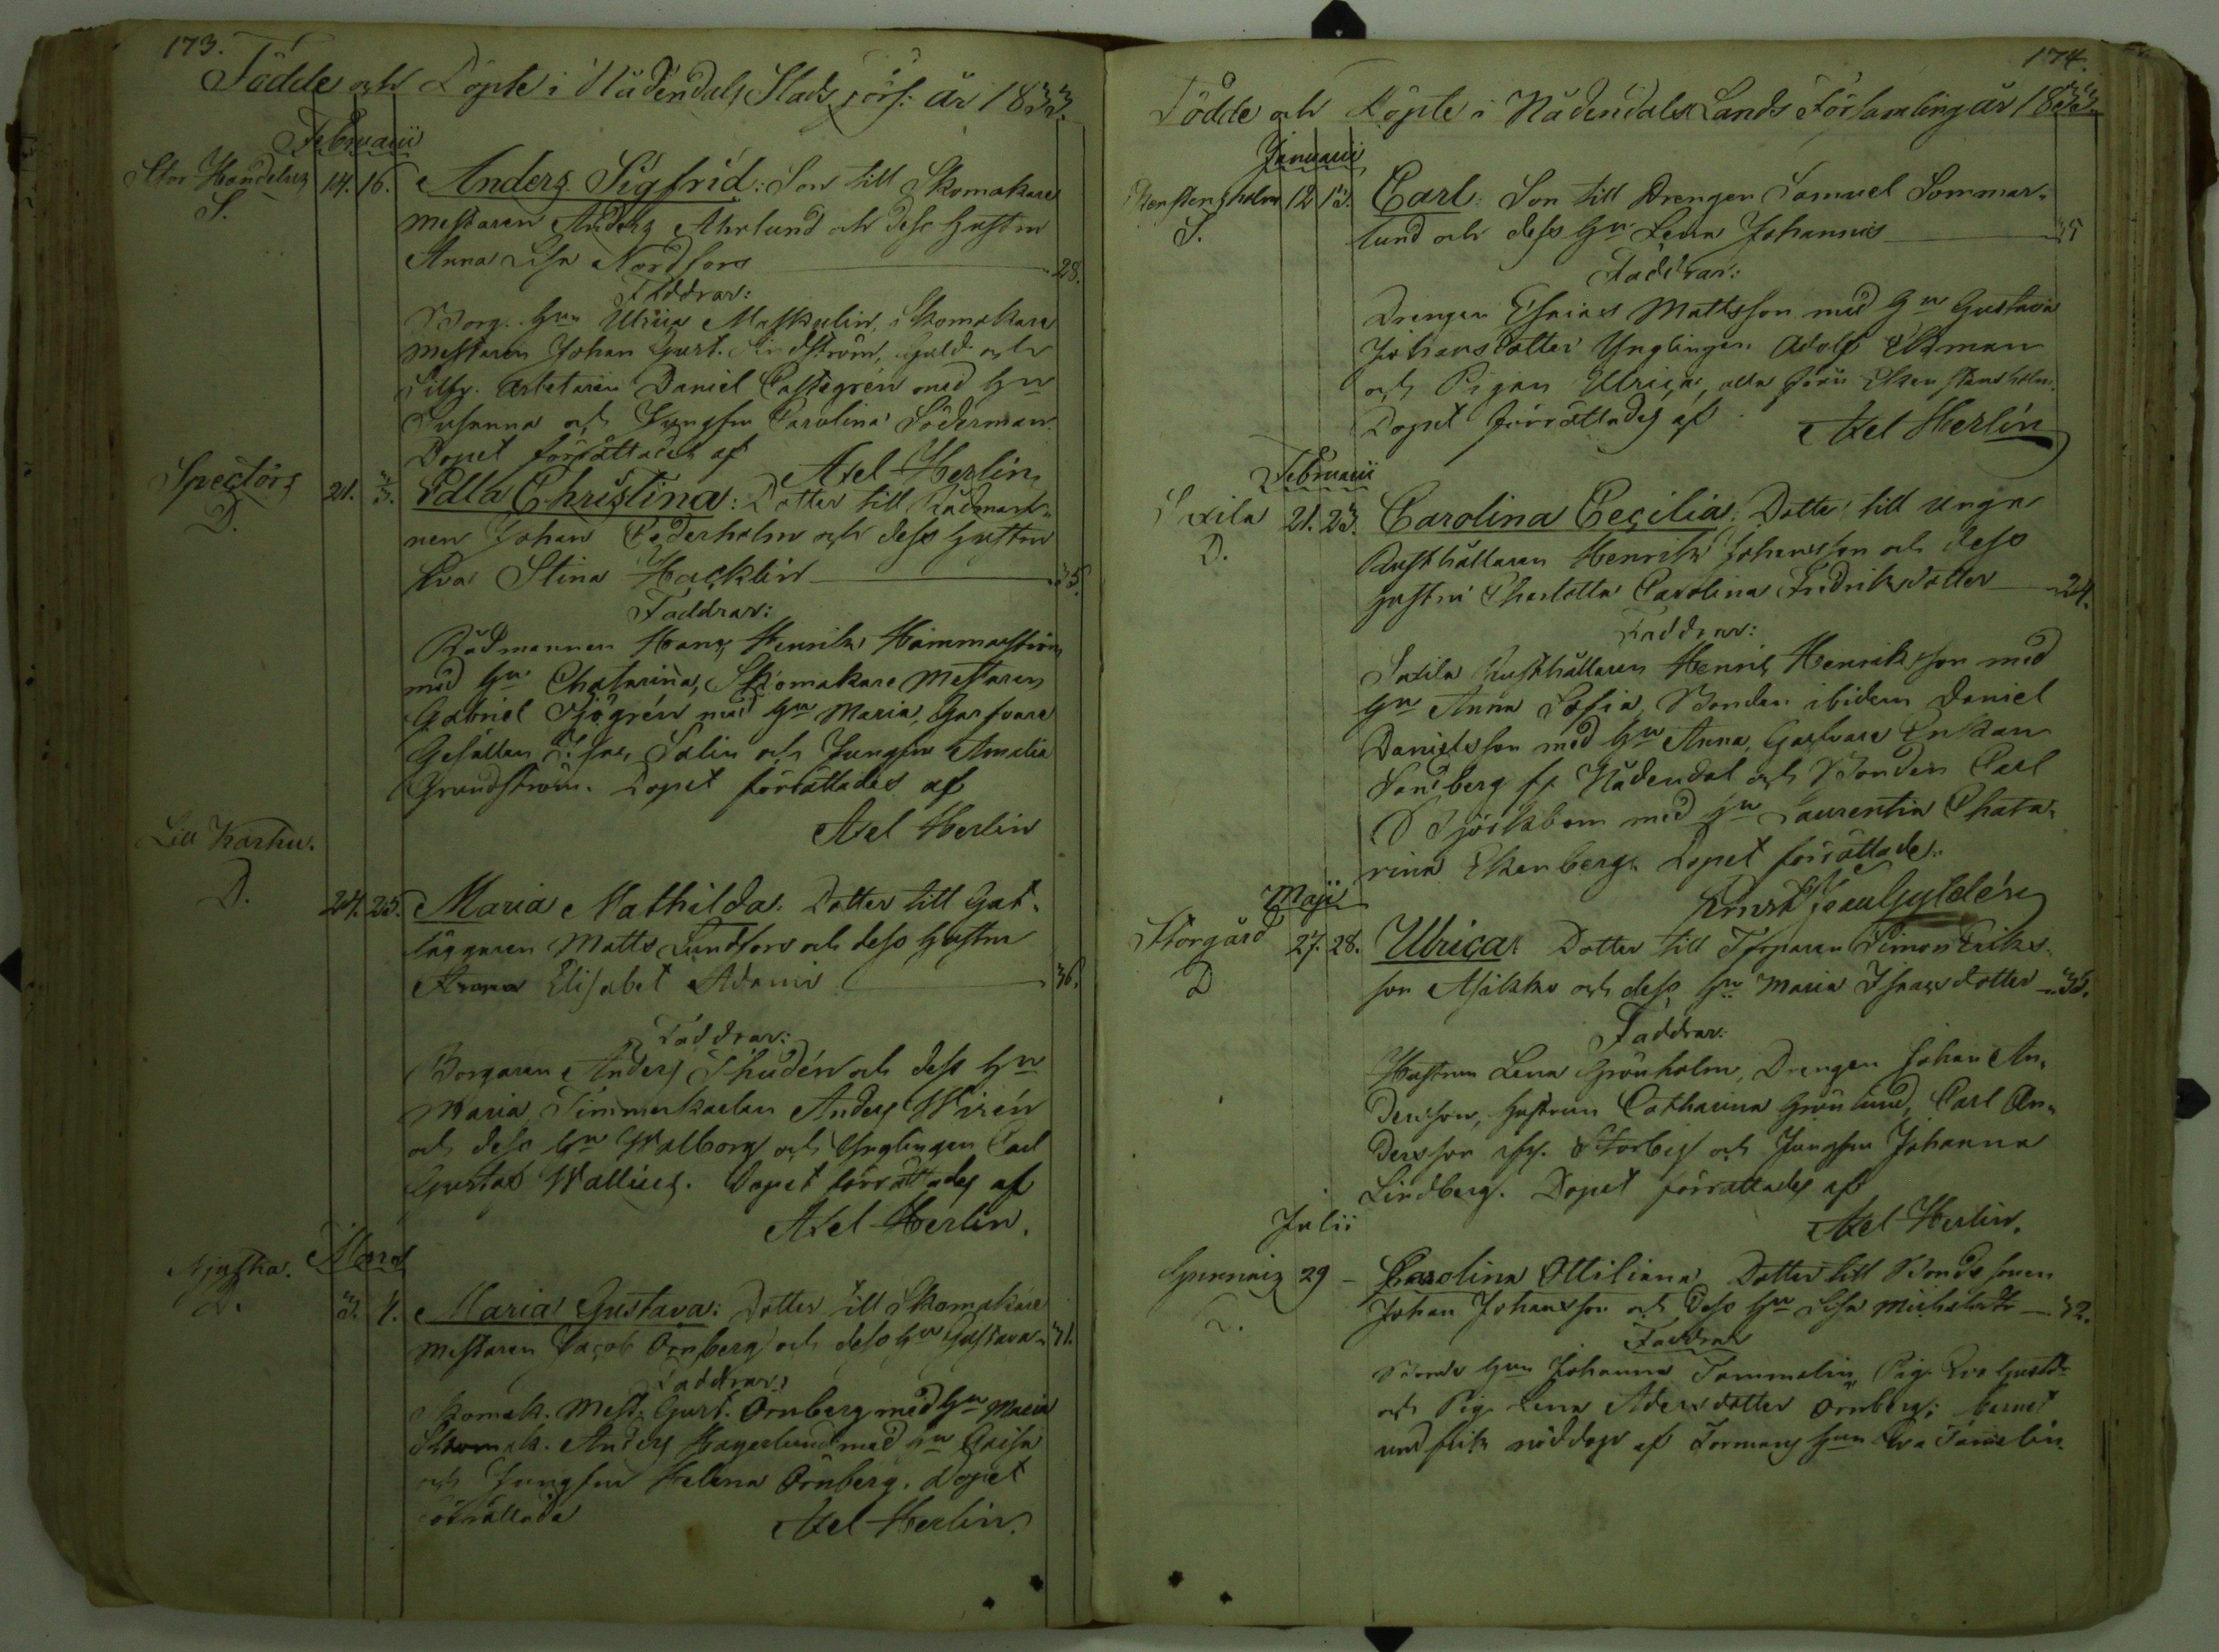 173.
Födde och Döpte i Nådendals Stads förs: år 1833.
Februarii
Stor Handelus 14. 16. Anders Sigfrid: Son till Skomakare
S. mestaren Anders Ahrlund och dess hustru
Anna Lisa Nordfors 28.
Faddrar:
Borg. Hu Ulrica Maskulin, Skomakare
mestaren Johan Gust. Lindström, Guld och
Silfv. arbetaren Daniel Castegrén med hu
Susanna och Jungfru Carolina Söderman.
Dopet förrättades af
Axel Herlin.
Spectörs 21. 3. Edla Christina: Dotter till Rådman-
D. nen Johan Cederholm och dess hustru
Eva Stina Hacklin 35.
Faddrar:
Rådmannen Hans Henrik Hammarström
med hu Chatarina, Skomakare mestaren
Gabriel Sjögrén med hu Maria, Garfvare
Gesällen Isac Salin och Jungfru Amalia
Grundström. Dopet förrättades af
Axel Herlin
Lill Karhu.
D. 24. 25. Maria Mathilda: Dotter till Gat-
läggaren Matts Lindfors och dess hustru
Anna Elisabet Adami 36.
Faddrar:
Borgaren Anders Thudén och dess hu
Maria, Timmerkarlen Anders Wirén
och dess hu Walborg och Ynglingen Carl
Gustaf Wallius. Dopet förrättades af
Axel Herlin.
Mars
D. 3. 4. Maria Gustava: Dotter till Skomakare
mestaren Jacob Örnberg och dess hu Gustava 31.
Faddrar:
Skomak. Mest. Gust. Örnberg med hu Maria
Skomak. Anders Hagerlund med hu Caisa
och Jungfru Helena Örnberg. Dopet
förrättade
Axel Herlin.
174.
Födde och Döpte i Nådendals Lands Församling år 1833.
Januarii
Ekenstensholm 12 13. Carl: Son till Drengen Samuel Sommar-
S. lund och dess hu Lena Johannis
Faddrar:
Drengen Esaias Mattsson med hu Gustava
Johansdotter Ynglingen Adolf Ekman
och Pigan Ulrica, alla från Ekenstensholm.
Dopet förrättades af
Axel Herlin
Februarii
Saxila 21. 23. Carolina Cecilia: Dotter till unga
D. Rusthållaren Henrik Johansson och dess
hustru Charlotta Carolina Fredriksdotter 24.
Faddrar:
Saxila Rusthållaren Henric Henriksson med
hu Anna Sofia, Bonden ibidem Daniel
Danielsson med hu Anna, Garfvare Enkan
Sandberg fr Nådendal och Bonden Carl
Björkbom med hu Laurentia Chata-
rina Ekenberg. Dopet förrättade.
Gyldén
Maji
Storgård 27. 28. Ulrica: Dotter till Torparen Simon Eriks-
D son och dess hu Maria Isaacsdotter 33.
Faddrar:
Hustrun Lena Grönholm, Drengen Johan An-
dersson, hustrun Catharina Grönlund, Carl An-
dersson och Jungfru Johanna
Lindberg. Dopet förrättades af
Axel Herlin.
Julii
29 - Carolina Ottiliana Dotter till Bondesonen
D. Johan Johansson och dess hu Lisa Michelsdtr 32.
Faddrar
Bonde hun Johanna Tammelin, Pig. Eva Gustdr
och Pig. Lena Andersdotter Örnberg; barnet
undfick nöddop af hun Eva Tamelin